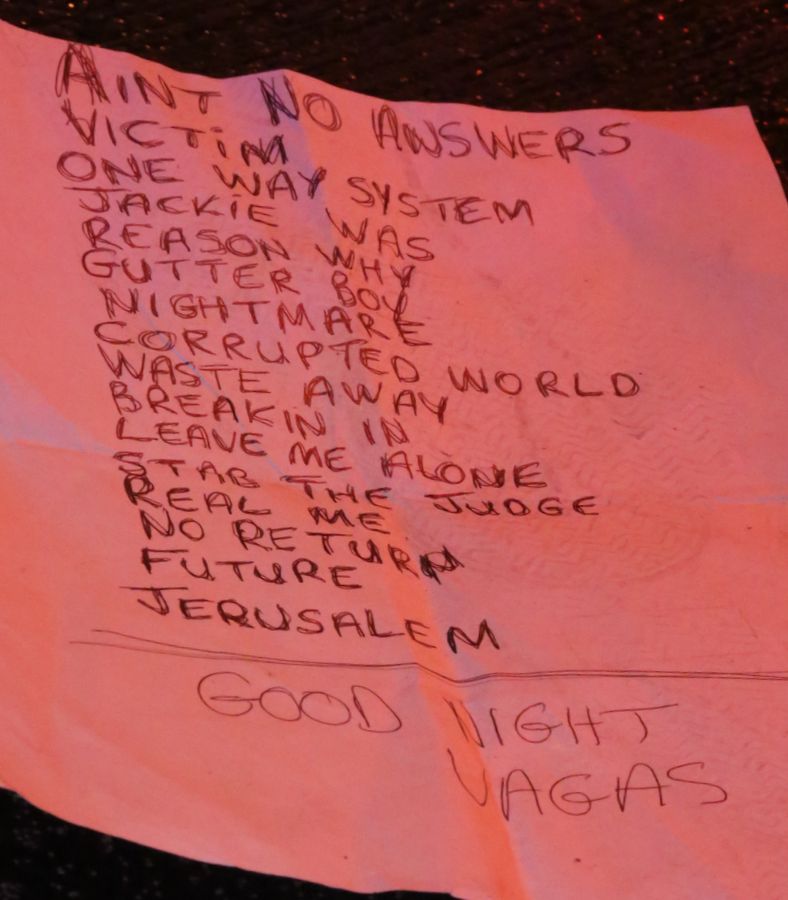 AINT NO ANSWERS
VICTIM
ONE WAY SYSTEM
JACKIE WAS
REASON WHY
GUTTER BOY
NIGHTMARE
CORRUPTED WORLD
WASTE AWAY
BREAKIN IN
LEAVE ME ALONE
STAB THE JUDGE
REAL ME
NO RETURN
FUTURE
JERUSALEM
GOOD NIGHT
VAGAS